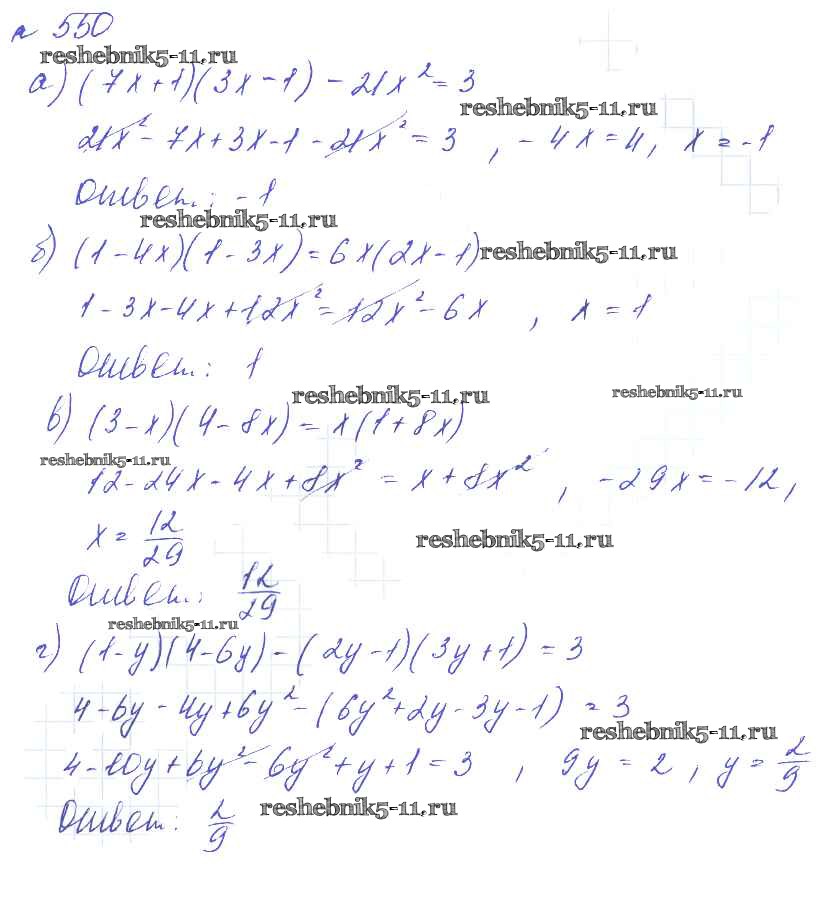 № 550
reshebnik5-11.ru
а) (7x+1)(3x-1) - 21x² = 3
reshebnik5-11.ru
21x² - 7x + 3x - 1 - 21x² = 3 , -4x = 4, x = -1
Ответ: -1
reshebnik5-11.ru
б) (1-4x)(1-3x) = 6x(2x-1)
reshebnik5-11.ru
1 - 3x - 4x + 12x² = 12x² - 6x , x = 1
Ответ: 1
reshebnik5-11.ru
reshebnik5-11.ru
в) (3-x)(4-8x) = x(1+8x)
reshebnik5-11.ru
12 - 24x - 4x + 8x² = x + 8x² , -29x = -12,
x = 12/29
reshebnik5-11.ru
Ответ: 12/29
reshebnik5-11.ru
г) (1-y)(4-6y) - (2y-1)(3y+1) = 3
4 - 6y - 4y + 6y² - (6y² + 2y - 3y - 1) = 3
reshebnik5-11.ru
4 - 10y + 6y² - 6y² + y + 1 = 3 , 9y = 2 , y = 2/9
Ответ: 2/9
reshebnik5-11.ru